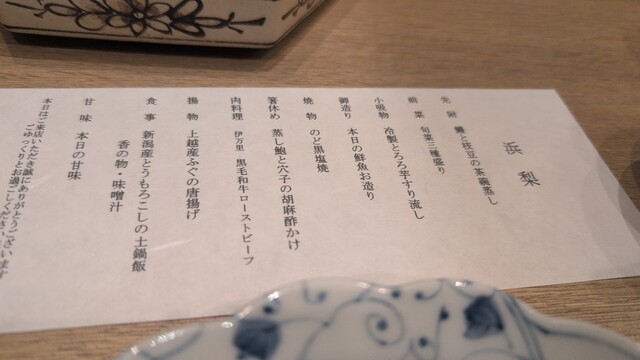 浜梨
先附 鱧と枝豆の茶碗蒸し
前菜 旬菜三種盛り
小吸物 冷製とろろ芋すり流し
御造り 本日の鮮魚お造り
焼物 のど黒塩焼
箸休め 蒸し鮑と穴子の胡麻酢かけ
肉料理 伊万里 黒毛和牛ローストビーフ
揚物 上越産ふぐの唐揚げ
食事 新潟産とうもろこしの土鍋飯
香の物・味噌汁
甘味 本日の甘味
本日はご来店いただき誠にありがとうございます
ごゆっくりとお過ごしください